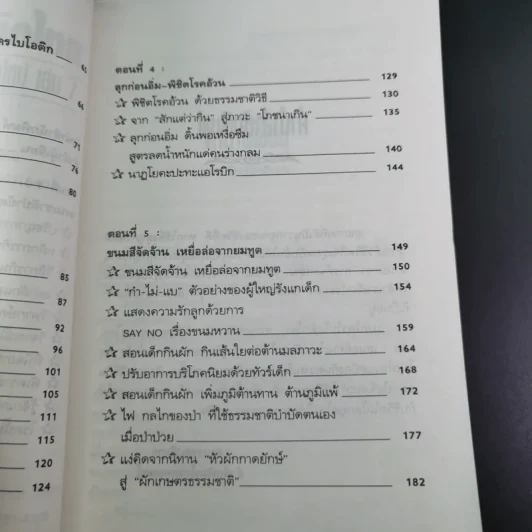 ครไบโอติก
65
66
71
76
80
85
87
92
96
101
105
111
115
120
124
ตอนที่ 4 :
ลุกก่อนอิ่ม-พิชิตโรคอ้วน 129
☆ พิชิตโรคอ้วน ด้วยธรรมชาติวิธี 130
☆ จาก "สักแต่ว่ากิน" สู่ภาวะ "โภชนาเกิน" 135
☆ ลุกก่อนอิ่ม ดื่นพอเหงื่อซึม
สูตรลดน้ำหนักแด่คนร่างกลม 140
☆ นาฏโยคะปะทะแอโรบิก 144
ตอนที่ 5 :
ขนมสีจัดจ้าน เหยื่อล่อจากยมทูต 149
☆ ขนมสีจัดจ้าน เหยื่อล่อจากยมทูต 150
☆ "กำ-ไม่-แบ" ตัวอย่างของผู้ใหญ่รังแกเด็ก 154
☆ แสดงความรักลูกด้วยการ
SAY NO เรื่องขนมหวาน 159
☆ สอนเด็กกินผัก กินเส้นใยต่อต้านมลภาวะ 164
☆ ปรับอาการบริโภคนิยมด้วยทัวร์เด็ก 168
☆ สอนเด็กกินผัก เพิ่มภูมิต้านทาน ต้านภูมิแพ้ 172
☆ ไฟ กลไกของป่า ที่ใช้ธรรมชาติบำบัดตนเอง
เมื่อป่าป่วย 177
☆ แง่คิดจากนิทาน "หัวผักกาดยักษ์"
สู่ "ผักเกษตรธรรมชาติ" 182